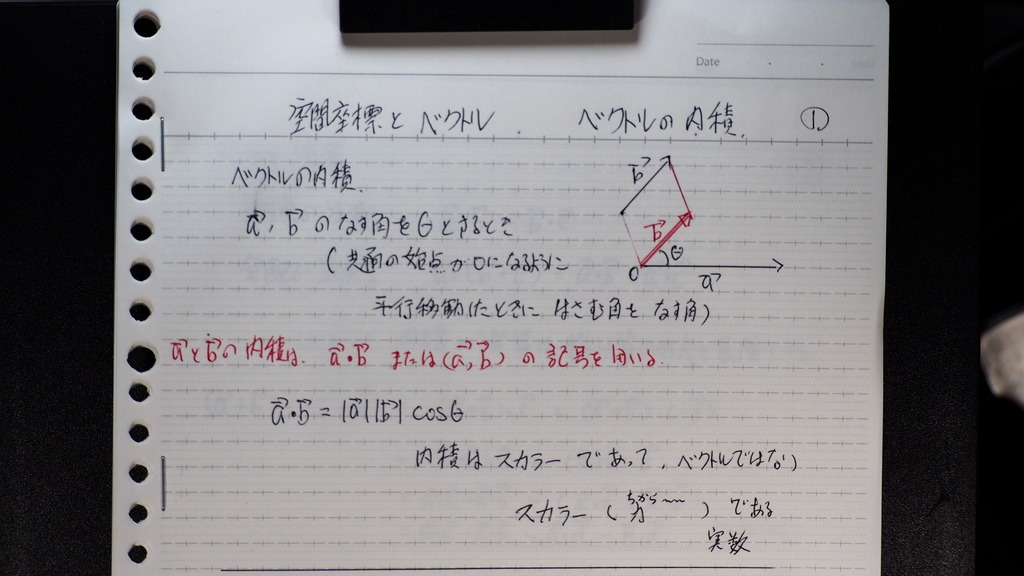 Date
空間座標とベクトル. ベクトルの内積. ①
ベクトルの内積.
a⃗, b⃗ のなす角をθとするとき
(共通の始点がOになるように
平行移動したときに はさむ角を なす角)
b⃗
b⃗
θ
O
a⃗
a⃗とb⃗の内積は. a⃗・b⃗ または(a⃗, b⃗) の記号を用いる.
a⃗・b⃗ = |a⃗||b⃗| cosθ
内積は スカラー であって, ベクトルではない
スカラー ( ちから 力 ) である
実数